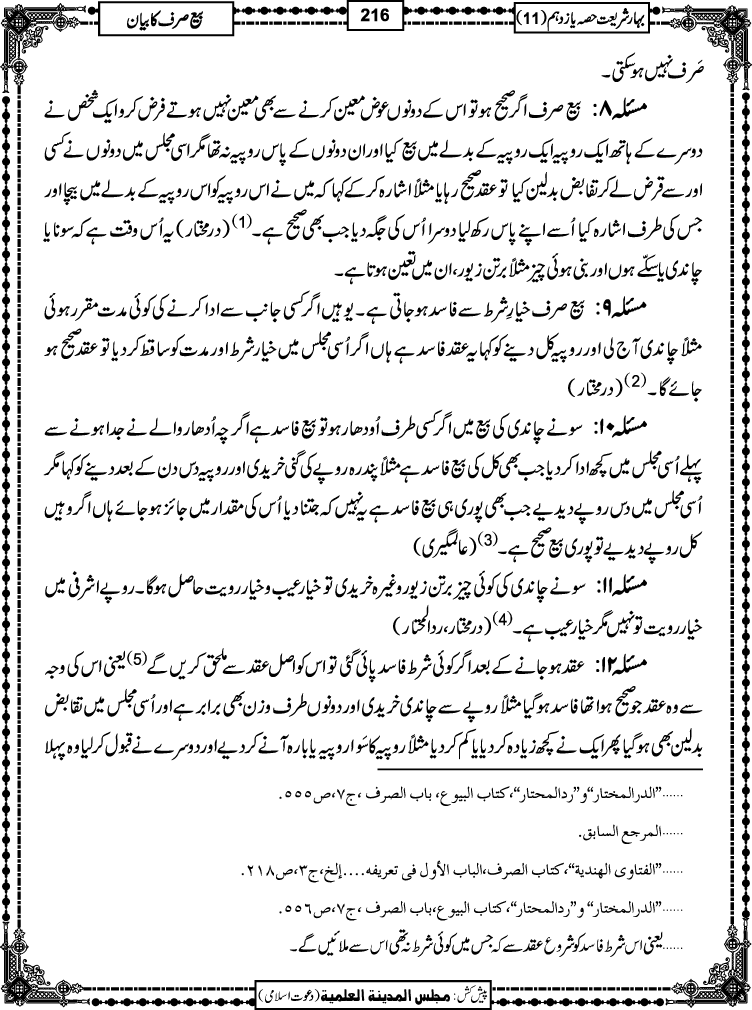 بہار شریعت حصہ یازدہم (11)
216
بیع صرف کا بیان
صَرف نہیں ہو سکتی۔
مسئلہ ۸: بیع صرف اگر صحیح ہو تو اس کے دونوں عوض معین کرنے سے بھی معین نہیں ہوتے فرض کرو ایک شخص نے
دوسرے کے ہاتھ ایک روپیہ ایک روپیہ کے بدلے میں بیع کیا اور ان دونوں کے پاس روپیہ نہ تھا مگر اسی مجلس میں دونوں نے کسی
اور سے قرض لے کر تقابض بدلین کیا تو عقد صحیح رہا یا مثلاً اشارہ کر کے کہا کہ میں نے اس روپیہ کو اس روپیہ کے بدلے میں بیچا اور
جس کی طرف اشارہ کیا اُسے اپنے پاس رکھ لیا دوسرا اُس کی جگہ دیا جب بھی صحیح ہے۔(1) (درمختار) یہ اُس وقت ہے کہ سونا یا
چاندی یا سکّے ہوں اور بنی ہوئی چیز مثلاً برتن زیور، ان میں تعین ہوتا ہے۔
مسئلہ ۹: بیع صرف خیارِ شرط سے فاسد ہو جاتی ہے۔ یو ہیں اگر کسی جانب سے ادا کرنے کی کوئی مدت مقرر ہوئی
مثلاً چاندی آج لی اور روپیہ کل دینے کو کہا یہ عقد فاسد ہے ہاں اگر اُسی مجلس میں خیار شرط اور مدت کو ساقط کر دیا تو عقد صحیح ہو
جائے گا۔(2) (درمختار)
مسئلہ ۱۰: سونے چاندی کی بیع میں اگر کسی طرف اُودھار ہو تو بیع فاسد ہے اگر چہ اُدھار والے نے جدا ہونے سے
پہلے اُسی مجلس میں کچھ ادا کر دیا جب بھی کل کی بیع فاسد ہے مثلاً پندرہ روپے کی گنی خریدی اور روپیہ دس دن کے بعد دینے کو کہا مگر
اُسی مجلس میں دس روپے دیدیے جب بھی پوری ہی بیع فاسد ہے یہ نہیں کہ جتنا دیا اُس کی مقدار میں جائز ہو جائے ہاں اگر وہیں
کل روپے دیدیے تو پوری بیع صحیح ہے۔(3) (عالمگیری)
مسئلہ ۱۱: سونے چاندی کی کوئی چیز برتن زیور وغیرہ خریدی تو خیار عیب و خیار رویت حاصل ہوگا۔ روپے اشرفی میں
خیار رویت تو نہیں مگر خیار عیب ہے۔(4) (درمختار، ردالمحتار)
مسئلہ ۱۲: عقد ہو جانے کے بعد اگر کوئی شرط فاسد پائی گئی تو اس کو اصل عقد سے ملحق کریں گے(5) یعنی اس کی وجہ
سے وہ عقد جو صحیح ہوا تھا فاسد ہوگیا مثلاً روپے سے چاندی خریدی اور دونوں طرف وزن بھی برابر ہے اور اُسی مجلس میں تقابض
بدلین بھی ہوگیا پھر ایک نے کچھ زیادہ کر دیا یا کم کر دیا مثلاً روپیہ کا سَوا روپیہ یا بارہ آنے کر دیے اور دوسرے نے قبول کر لیا وہ پہلا
......"الدرالمختار" و "ردالمحتار"، کتاب البیوع، باب الصرف، ج۷، ص۵۵۵.
......المرجع السابق.
......"الفتاوی الھندیۃ"، کتاب الصرف، الباب الأول فی تعریفہ....إلخ، ج۳، ص۲۱۸.
......"الدرالمختار" و "ردالمحتار"، کتاب البیوع، باب الصرف، ج۷، ص۵۵۶.
......یعنی اس شرط فاسد کو شروع عقد سے کہ جس میں کوئی شرط نہ تھی اس سے ملائیں گے۔
پیش کش: مجلس المدینۃ العلمیۃ (دعوت اسلامی)